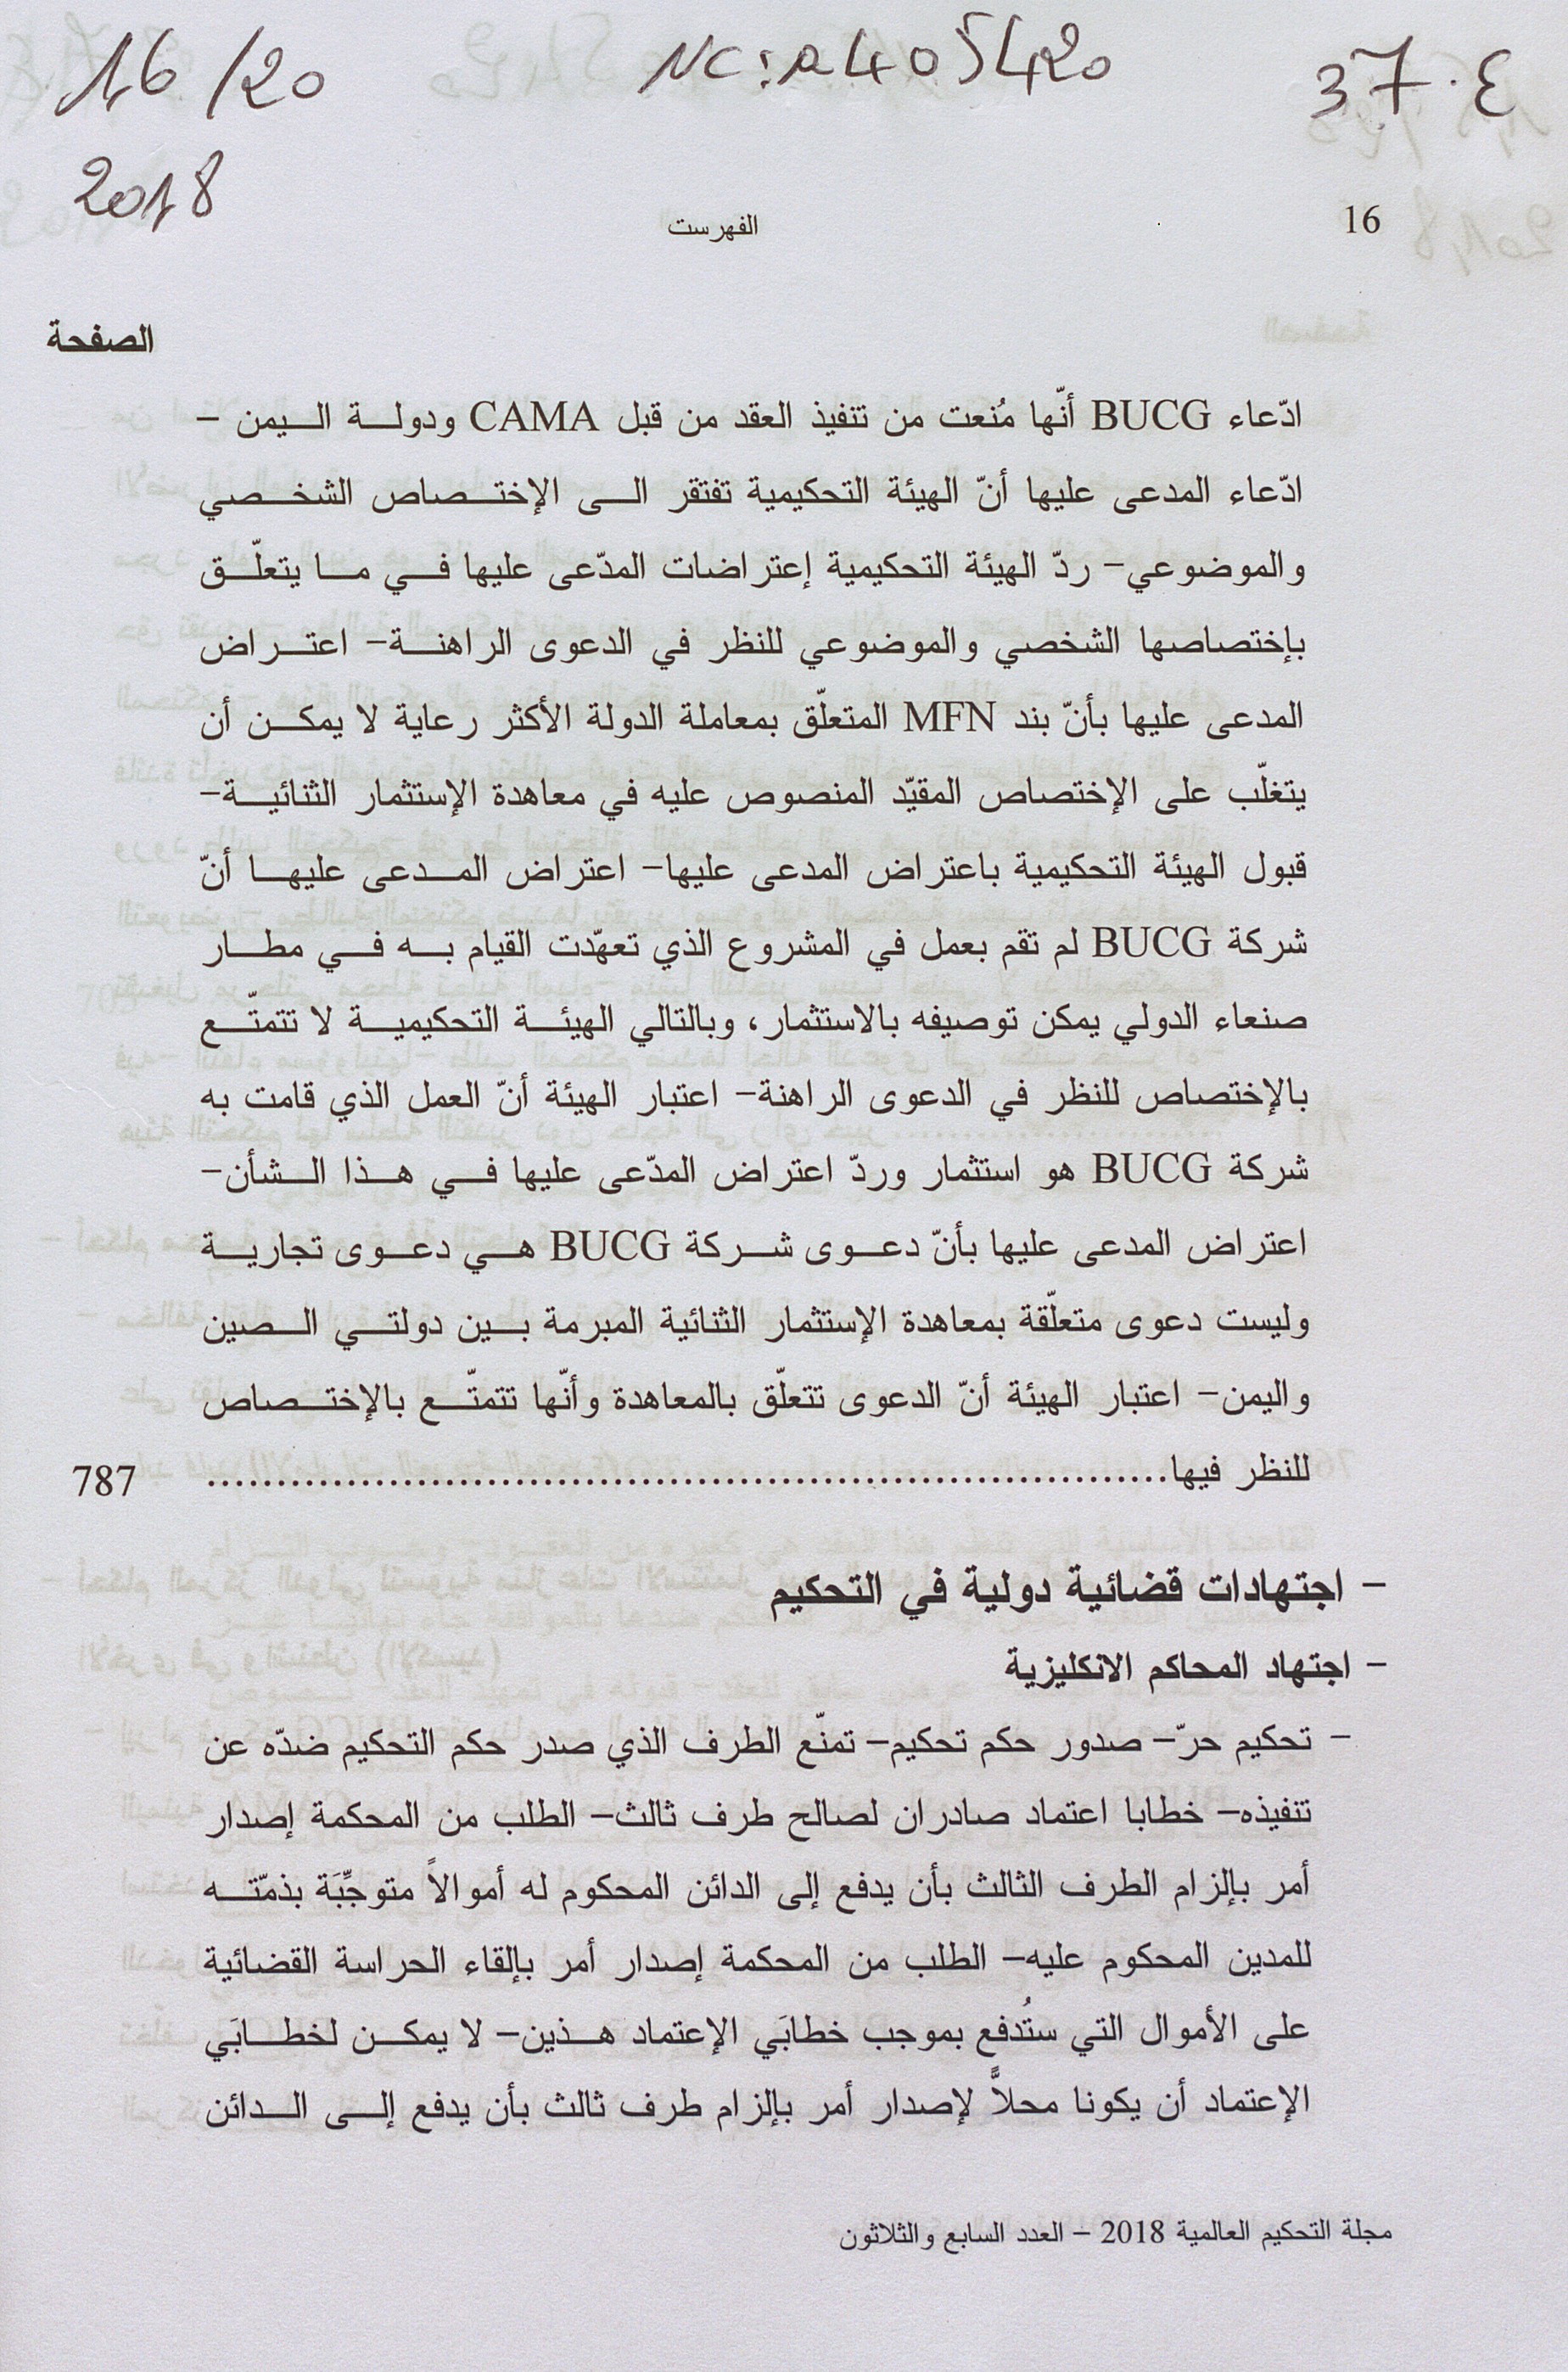 16/20
NC: a405420
37.ع
2018
16
الفهرست
الصفحة
ادّعاء BUCG أنّها مُنعت من تنفيذ العقد من قبل CAMA ودولة اليمن –
ادّعاء المدعى عليها أنّ الهيئة التحكيمية تفتقر الى الإختصاص الشخصي
والموضوعي– ردّ الهيئة التحكيمية إعتراضات المدّعى عليها في ما يتعلّق
بإختصاصها الشخصي والموضوعي للنظر في الدعوى الراهنة– اعتراض
المدعى عليها بأنّ بند MFN المتعلّق بمعاملة الدولة الأكثر رعاية لا يمكن أن
يتغلّب على الإختصاص المقيّد المنصوص عليه في معاهدة الإستثمار الثنائية–
قبول الهيئة التحكيمية باعتراض المدعى عليها– اعتراض المدعى عليها أنّ
شركة BUCG لم تقم بعمل في المشروع الذي تعهّدت القيام به في مطار
صنعاء الدولي يمكن توصيفه بالاستثمار، وبالتالي الهيئة التحكيمية لا تتمتّع
بالإختصاص للنظر في الدعوى الراهنة– اعتبار الهيئة أنّ العمل الذي قامت به
شركة BUCG هو استثمار وردّ اعتراض المدّعى عليها في هذا الشأن–
اعتراض المدعى عليها بأنّ دعوى شركة BUCG هي دعوى تجارية
وليست دعوى متعلّقة بمعاهدة الإستثمار الثنائية المبرمة بين دولتي الصين
واليمن– اعتبار الهيئة أنّ الدعوى تتعلّق بالمعاهدة وأنّها تتمتّع بالإختصاص
للنظر فيها.................................................................................. 787
– اجتهادات قضائية دولية في التحكيم
– اجتهاد المحاكم الانكليزية
– تحكيم حرّ– صدور حكم تحكيم– تمنّع الطرف الذي صدر حكم التحكيم ضدّه عن
تنفيذه– خطابا اعتماد صادران لصالح طرف ثالث– الطلب من المحكمة إصدار
أمر بإلزام الطرف الثالث بأن يدفع إلى الدائن المحكوم له أموالاً متوجِّبَة بذمّته
للمدين المحكوم عليه– الطلب من المحكمة إصدار أمر بإلقاء الحراسة القضائية
على الأموال التي ستُدفع بموجب خطابَي الإعتماد هذين– لا يمكن لخطابَي
الإعتماد أن يكونا محلاًّ لإصدار أمر بإلزام طرف ثالث بأن يدفع إلى الدائن
مجلة التحكيم العالمية 2018 – العدد السابع والثلاثون